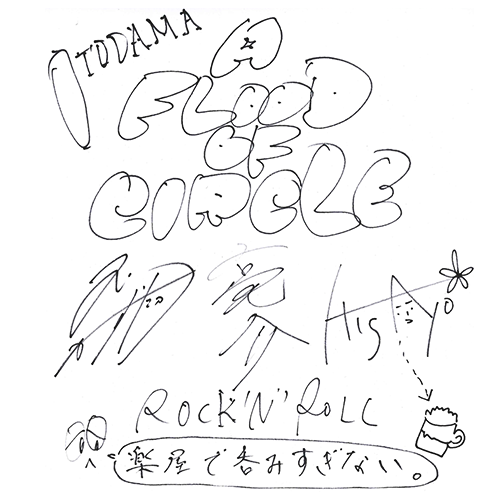 OTODAMA
A
FLOOD
OF
CIRCLE
HISAYO
ROCK'N'ROLL
楽屋で呑みすぎない。